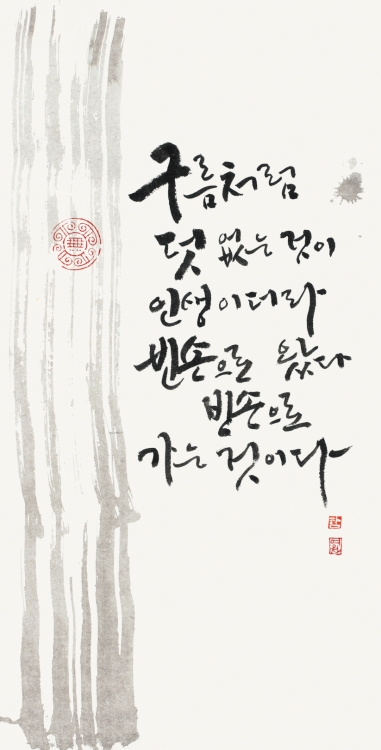 구름처럼
덧 없는 것이
인생이더라
빈손으로 왔다
빈손으로
가는 것이다
無